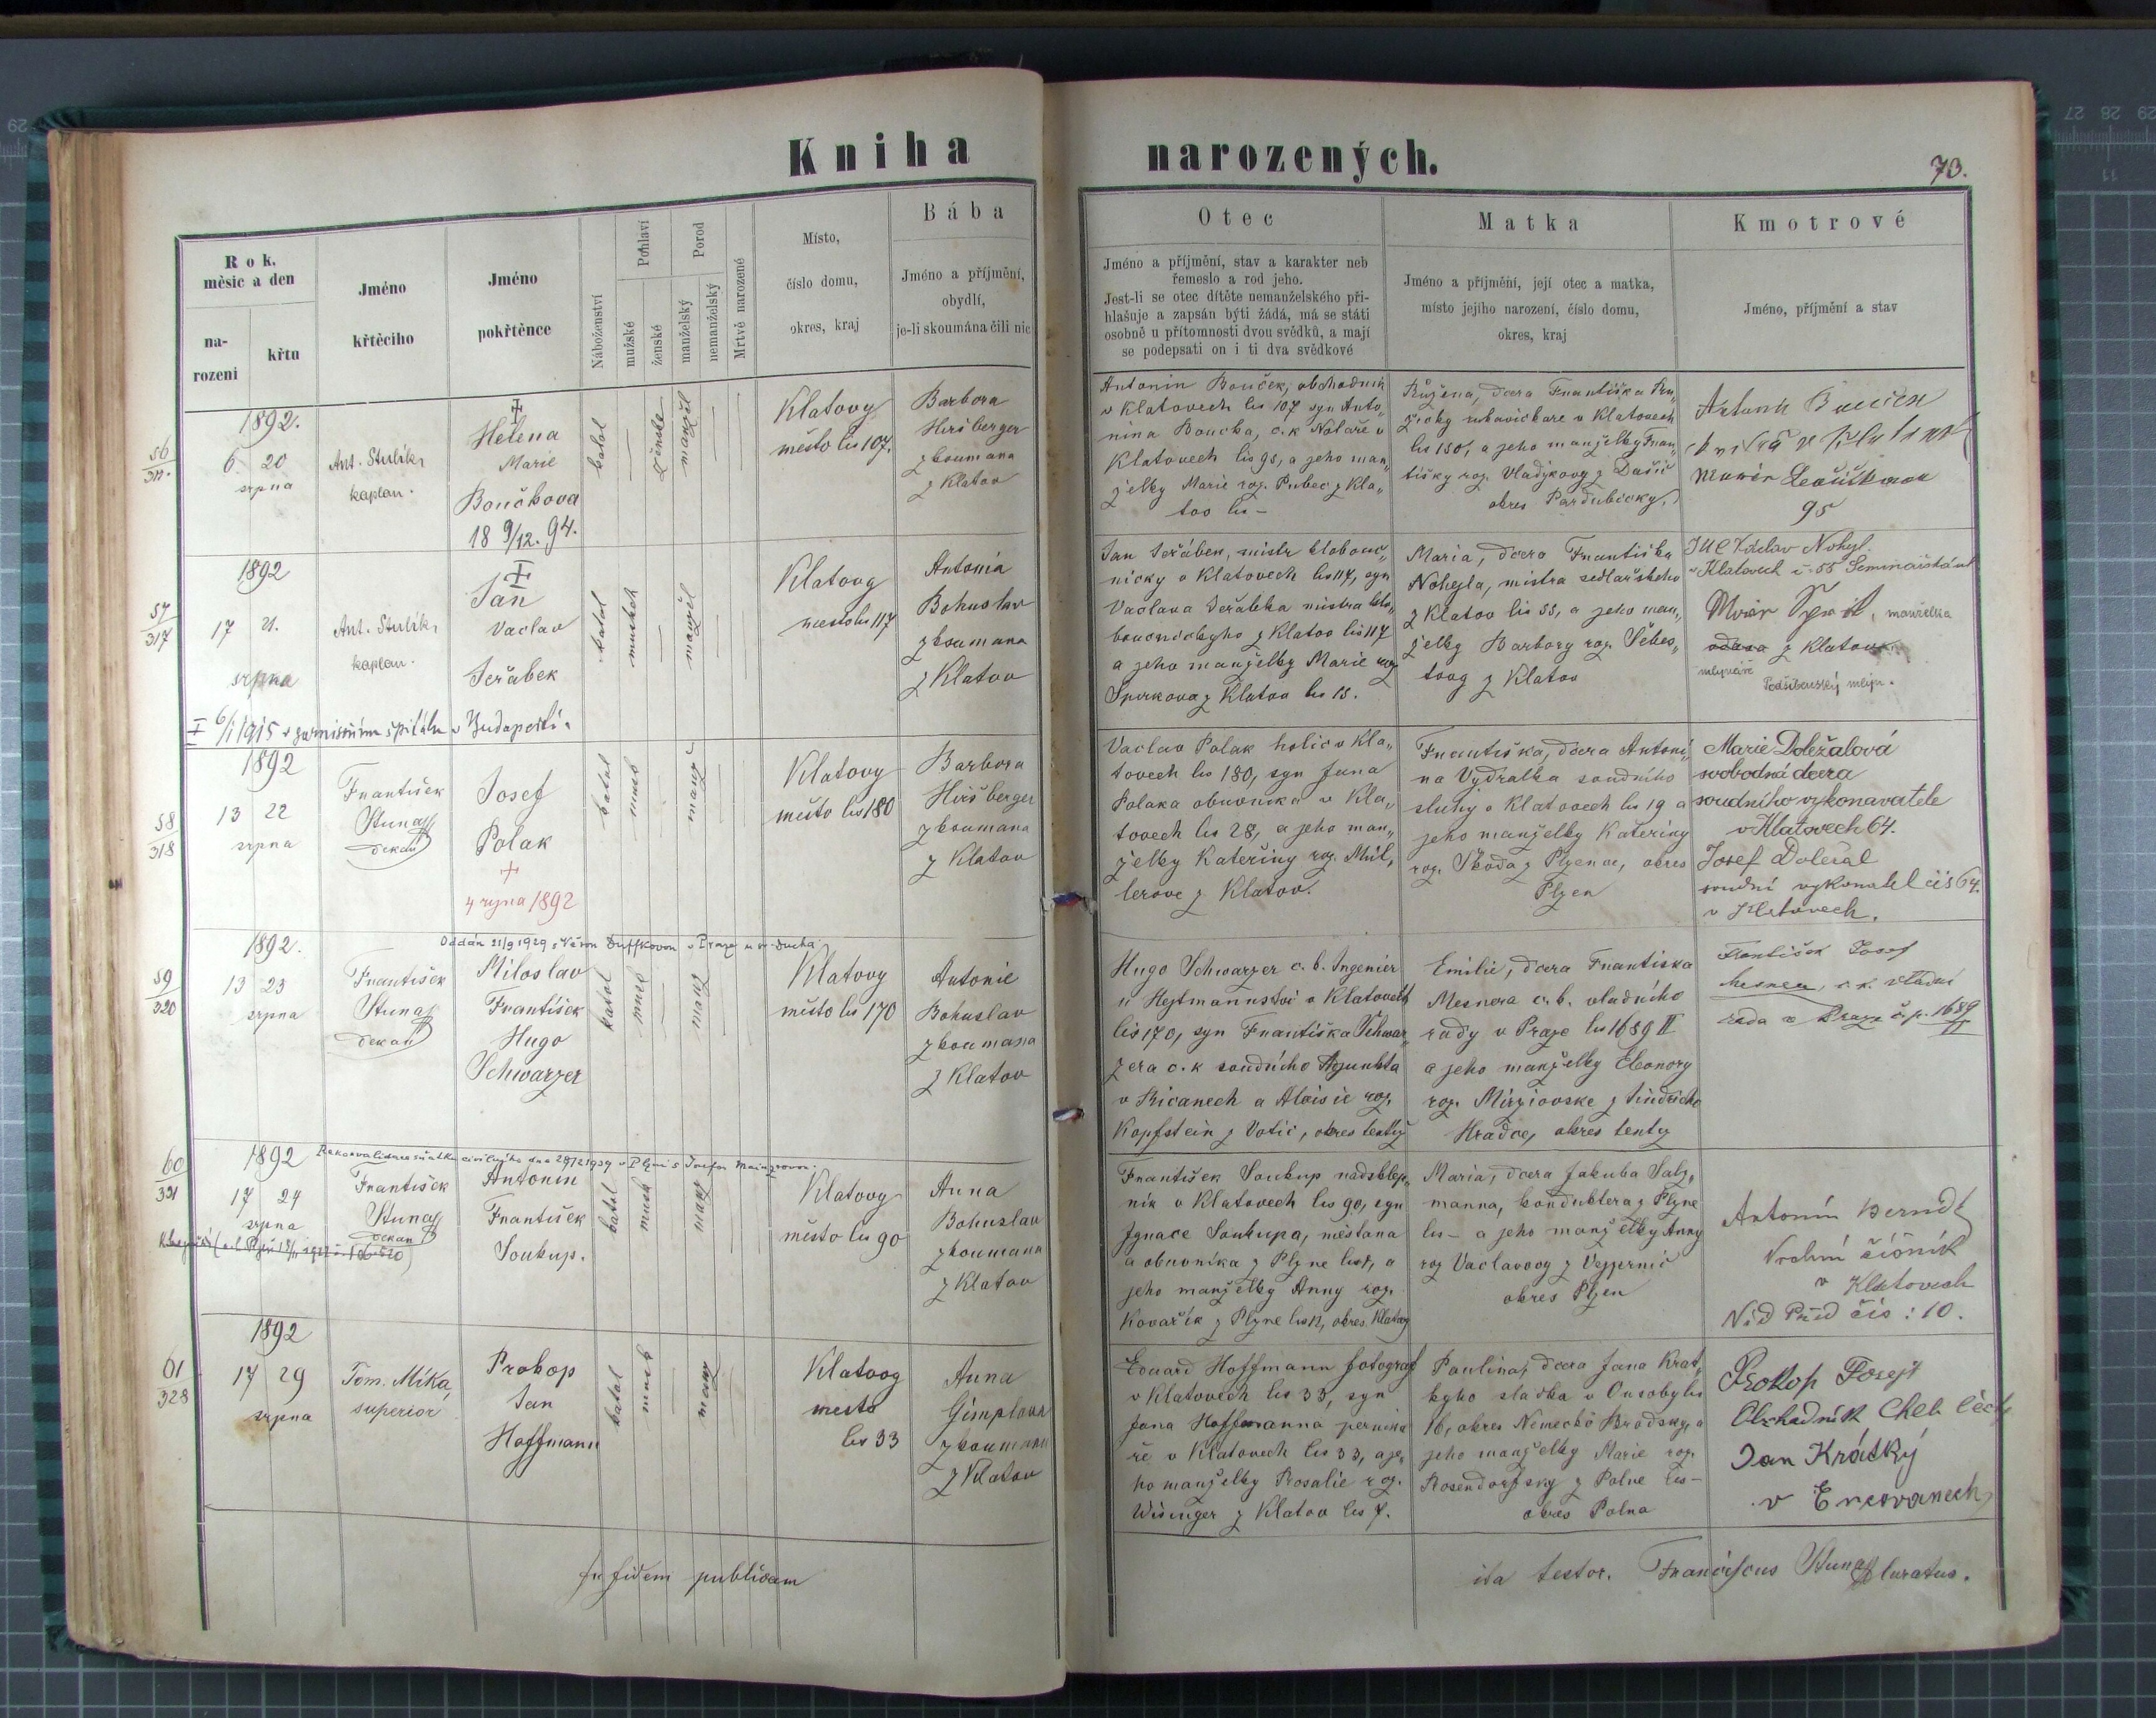 Kniha narozených.
73.
Rok, měsíc a den
na-
rozeni
křtu
Jméno
křtěcího
Jméno
pokřtěnce
Náboženství
Pohlaví
mužské
ženské
Porod
manželský
nemanželský
Mrtvě narozené
Místo,
číslo domu,
okres, kraj
Bába
Jméno a příjmění,
obydlí,
je-li skoumána čili nic
Otec
Jméno a příjmění, stav a karakter neb
řemeslo a rod jeho.
Jest-li se otec dítěte nemanželského při-
hlašuje a zapsán býti žádá, má se státi
osobně u přítomnosti dvou svědků, a mají
se podepsati on i ti dva svědkové
Matka
Jméno a příjmění, její otec a matka,
místo jejího narození, číslo domu,
okres, kraj
Kmotrové
Jméno, příjmění a stav
56
1892.
6. 20
srpna
Ant. Stulík,
kaplan.
Helena
Marie
Boučkova
18 9/12. 94.
katol
ženske
manžel
Klatovy
město čis 107.
Barbora
Hiršberger
zkoumana
z Klatov
Antonin Bouček, obchodnik
v Klatovech čis 107 syn Anto„
nina Boučka, c.k Notaře v
Klatovech čis 95, a jeho man„
želky Marie roz. Pubec z Kla„
tov čis –
Růžena, dcera Františka Ru„
žičky rukavičkare v Klatovech
čis 150, a jeho manželky Fran„
tišky roz. Vladykovy z Dašic
okres Pardubicky.
Antonín Bouček
95
57
317
1892
17 21.
srpna
Ant. Stulík,
kaplan.
Jan
Vaclav
Jeřábek
katol
mužsk
manžel
Klatovy
město čis 117
Antonia
Bohuslav
zkoumana
z Klatov
Jan Jeřábek, mistr klobouč„
nický v Klatovech čis 117, syn
Vaclava Jeřábka mistra klo„
boučnickyho z Klatov čis 117
a jeho manželky Marie roz
Sperkova z Klatov čis 15.
Maria, dcera Františka
Nohejla, mistra sedlařskeho
z Klatov čis 55, a jeho man„
želky Barbory roz. Šebes„
tovy z Klatov
JUC Václav Nohejl
v Klatovech č. 55 Seminářská ul
manželka
z Klatov
mlynáře
6/1 1915 v garnisonním špitálu v Budapešti.
58
318
1892
13 22
srpna
František
Stunaff
děkan
Josef
Polak
4 rijna 1892
katol
mušk
manž
Klatovy
město čis 180
Barbora
Hiršberger
zkoumana
z Klatov
Vaclav Polak holic v Kla„
tovech čis 180, syn Jana
Polaka obuvnika v Kla„
tovech čis 28, a jeho man„
želky Kateřiny roz. Mül„
lerove z Klatov.
Františka, dcera Antoni„
na Vydralka soudního
sluhy v Klatovech čis 19 a
jeho manželky Kateřiny
roz. Skoda z Plzence, okres
Plzen
Marie Doležalová
svobodná dcera
soudního vykonavatele
v Klatovech 64.
Josef Doležal
soudní vykonatel čis 64.
v Klatovech.
59
320
1892.
Oddán 21/9 1929 s Věrou Duffkovou v Praze u sv. Ducha
13 23
srpna
František
Stunaff
děkan
Miloslav
František
Hugo
Schwarzer
katol
mušk
manž
Klatovy
město čis 170
Antonie
Bohuslav
zkoumana
z Klatov
Hugo Schwarzer c. k. Ingenier
u Hejtmannství v Klatovech
čis 170, syn Františka Schwar„
zera c.k soudního Adjunkta
v Ricanech a Aloisie roz.
Kopfstein z Votic, okres tentýž
Emilie, dcera Františka
Mesnera c. k. vladního
rady v Praze čis 1689 II
a jeho manželky Eleonory
roz. Mirziovske z Jindricho
Hradce, okres tenty
František Josef
Mesner, c. k. vládní
rada v Praze č. p. 1689
II
60
321
1892
Rekonvalidace sňatku civilního dne 28/2 1939 v Plzni s Josefou Mainzrovou.
17 24
srpna
František
Stunaff
děkan
Antonin
František
Soukup.
katol
mušk
manž
Klatovy
město čis 90
Anna
Bohuslav
zkoumana
z Klatov
František Soukup nadsklep„
nik v Klatovech čis 90, syn
Ignace Soukupa, měštana
a obuvnika z Plzne čis 1, a
jeho manželky Anny roz.
Kovařík z Plzne čis 12, okres. Klatovy
Maria, dcera Jakuba Salz„
manna, konduktera z Plzne
čis – a jeho manželky Anny
roz Vaclavovy z Vejprnic
okres Plzen
Antonín Berndt
Vrchní číšník
v Klatovech
Níd Příd čís : 10.
61
328
1892
17 29
srpna
Tom. Míka,
superior
Prokop
Jan
Hoffmann
katol
mušk
manž
Klatovy
město
čis 33
Anna
Gimplova
zkoumana
z Klatov
Eduard Hoffmann fotograf
v Klatovech čis 33, syn
Jana Hoffmanna pernika„
ře v Klatovech čis 33, a je„
ho manželky Rosalie roz.
Wisinger z Klatov čis 7.
Paulina, dcera Jana Krat„
kyho sladka v Ousobý čis
16, okres Německo Brodsky, a
jeho manželky Marie roz.
Rosendorfsky z Polne čis –
okres Polna
Prokop Josejt
Obchodník
Jan Krátký
v
In fidem publicam
ita testor. Franciscus Stunaff Curatus.